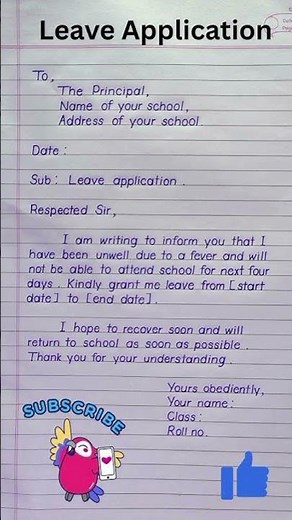 Leave Application
To,
The Principal,
Name of your school,
Address of your school.
Date :
Sub : Leave application .
Respected Sir,
I am writing to inform you that I
have been unwell due to a fever and will
not be able to attend school for next four
days . Kindly grant me leave from [start
date] to [end date] .
I hope to recover soon and will
return to school as soon as possible .
Thank you for your understanding .
Yours obediently,
Your name :
Class :
Roll no .
SUBSCRIBE